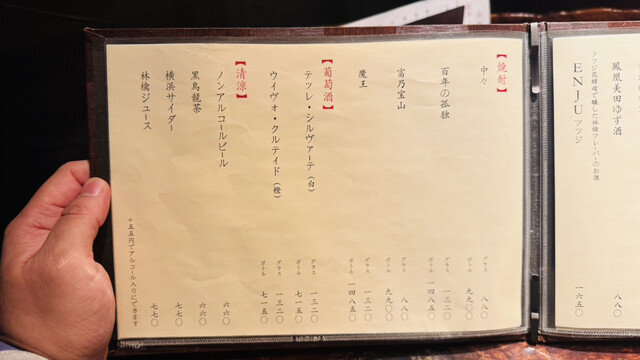 鳳凰美田ゆず酒
八八〇
ツツジ花酵母で醸した林檎フレーバーのお酒
ENJU ツツジ
一六五〇
【焼酎】
中々
グラス 八八〇
ボトル 九九〇〇
百年の孤独
グラス 一三二〇
ボトル 一四八五〇
富乃宝山
グラス 八八〇
ボトル 九九〇〇
魔王
グラス 一三二〇
ボトル 一四八五〇
【葡萄酒】
テッレ・シルヴァーテ(白)
グラス 一三二〇
ボトル 七一五〇
ウイヴォ・クルテイド(橙)
グラス 一三二〇
ボトル 七一五〇
【清涼】
ノンアルコールビール
六六〇
黒烏龍茶
六六〇
横浜サイダー
七七〇
林檎ジュース
七七〇
+五五円でアルコール入りにできます